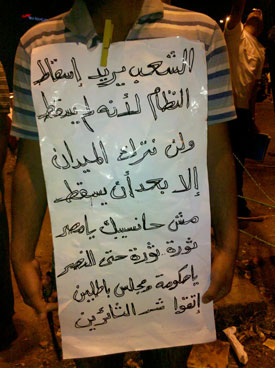 الشعب يريد إسقاط
النظام لأنه لم يسقط
ولن نترك الميدان
إلا بعد أن يسقط
مش حانسيبك يا مصر
ثورة.. ثورة حتى النصر
يا حكومة ومجلس باطلين
إتقوا شر الثائرين